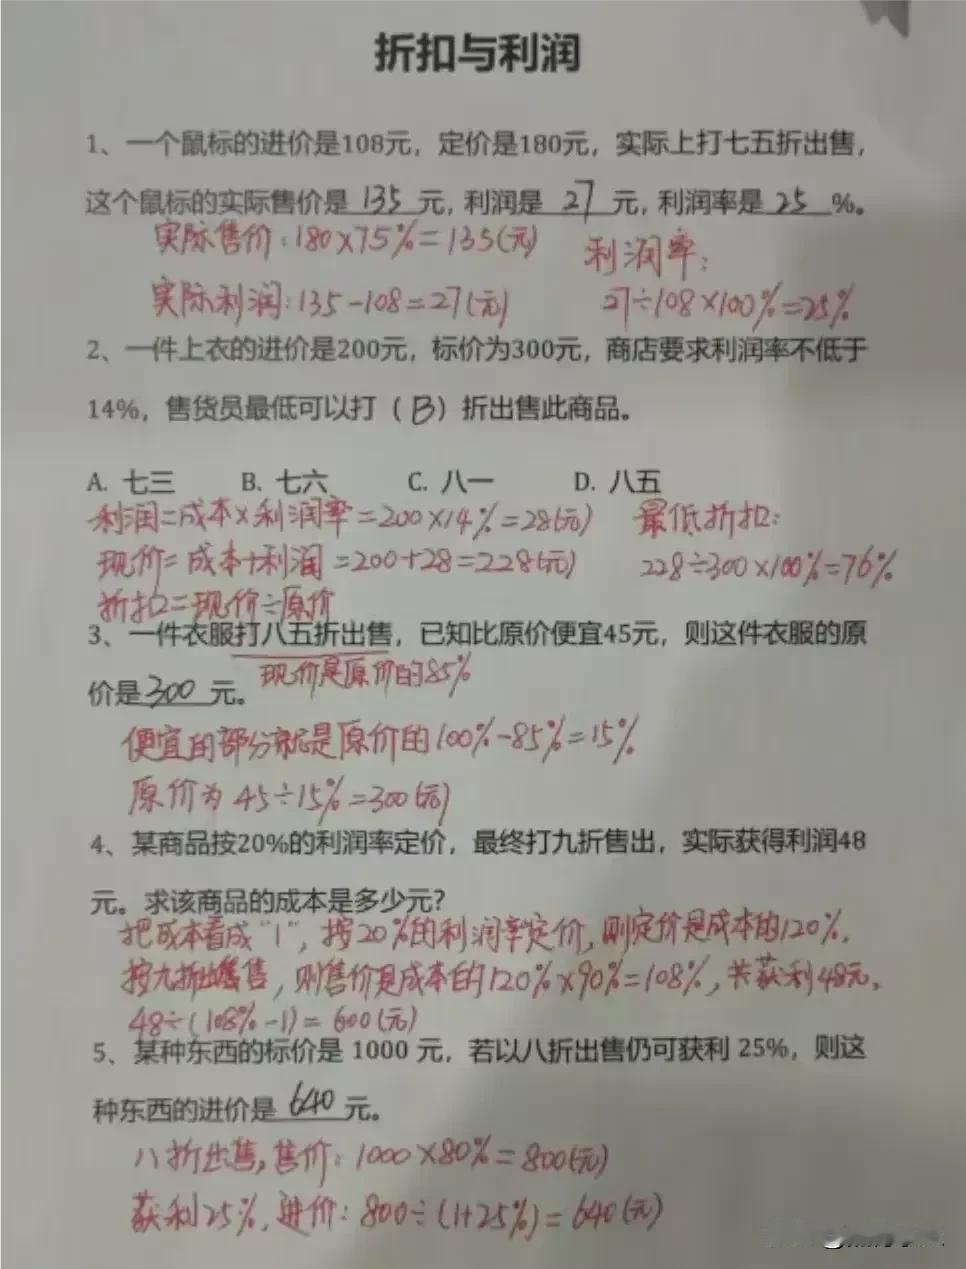 折扣与利润
1、一个鼠标的进价是108元，定价是180元，实际上打七五折出售，
这个鼠标的实际售价是 135 元，利润是 27 元，利润率是 25 %。
实际售价：180×75%=135(元) 利润率：
实际利润：135-108=27(元) 27÷108×100%=25%
2、一件上衣的进价是200元，标价为300元，商店要求利润率不低于
14%，售货员最低可以打（B）折出售此商品。
A. 七三 B. 七六 C. 八一 D. 八五
利润=成本×利润率=200×14%=28(元) 最低折扣：
现价=成本+利润=200+28=228(元) 228÷300×100%=76%
折扣=现价÷原价
3、一件衣服打八五折出售，已知比原价便宜45元，则这件衣服的原
现价是原价的85%
价是 300 元。
便宜的部分就是原价的100%-85%=15%
原价为 45÷15%=300(元)
4、某商品按20%的利润率定价，最终打九折售出，实际获得利润48
元。求该商品的成本是多少元？
把成本看成“1”，按20%的利润率定价，则定价是成本的120%.
按九折出售，则售价是成本的120%×90%=108%，共获利48元.
48÷(108%-1)=600(元)
5、某种东西的标价是 1000 元，若以八折出售仍可获利 25%，则这
种东西的进价是 640 元。
八折出售，售价：1000×80%=800(元)
获利25%，进价：800÷(1+25%)=640(元)